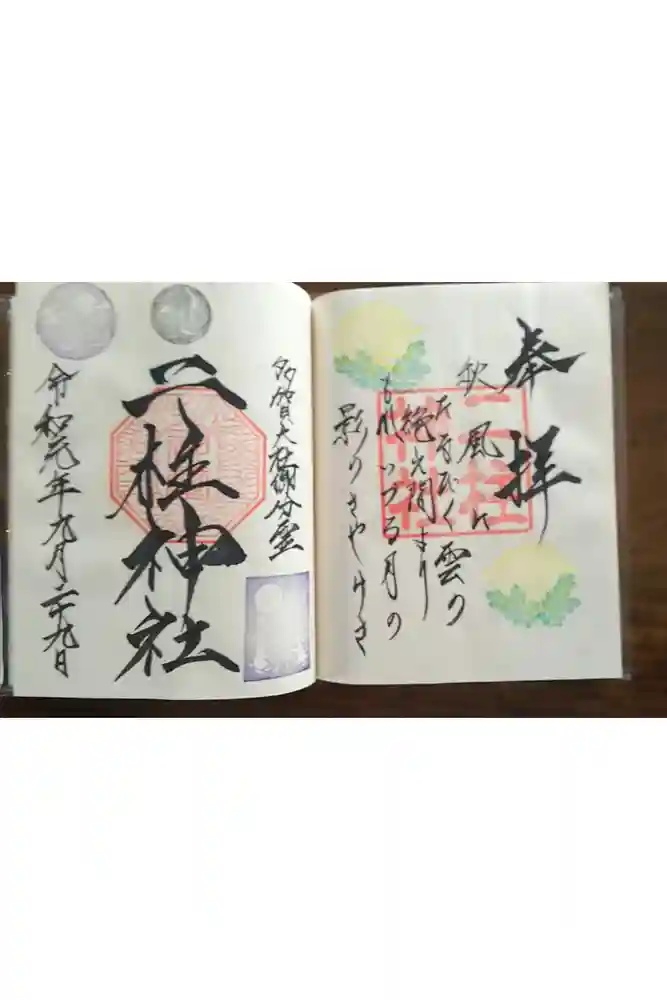 奉拝
秋風に
たなびく雲の
絶え間より
もれいづる月の
影のさやけさ
二柱神社
多賀大社御分霊
二柱神社
令和元年九月二十九日